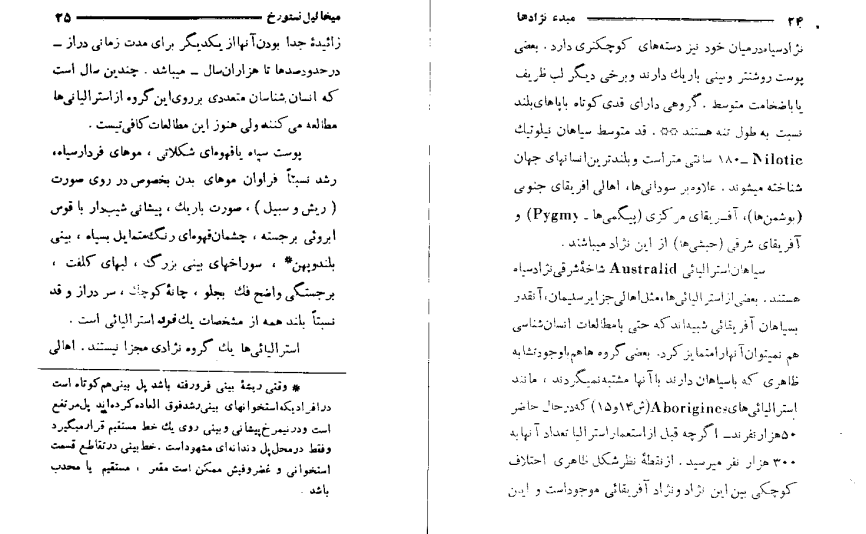 ۲۴ مبدء نژادها
نژادسیاه درمیان خود نیز دسته‌های کوچکتری دارد . بعضی
پوست روشنتر وبینی باریك دارند وبرخی دیگر لب ظریف
یا باضخامت متوسط . گروهی دارای قدی کوتاه باپاهای بلند
نسبت به طول تنه هستند ** . قد متوسط سیاهان نیلوتیك
Nilotic ـ ۱۸۰ سانتی متر است وبلندترین انسانهای جهان
شناخته میشوند . علاوه‌بر سودانی‌ها، اهالی افریقای جنوبی
(بوشمن‌ها)، آفریقای مرکزی (پیگمی‌ها ـ Pygmy) و
آفریقای شرقی (حبشی‌ها) از این نژاد میباشند .
سیاهان استرالیائی Australid شاخهٔ شرقی نژادسیاه
هستند . بعضی از استرالیائی‌ها، مثل اهالی جزایر سلیمان، آنقدر
بسیاهان آفریقائی شبیه‌اند که حتی بامطالعات انسان‌شناسی
هم نمیتوان آنها را متمایز کرد. بعضی گروه ها هم باوجود تشابه
ظاهری که باسیاهان دارند باآنها مشتبه نمیگردند ، مانند
استرالیائی‌های Aborigines (ش ۱۴و۱۵) که در حال حاضر
۵۰ هزار نفرند ـ اگرچه قبل از استعمار استرالیا تعداد آنها به
۳۰۰ هزار نفر میرسید . از نقطهٔ نظر شکل ظاهری اختلاف
کوچکی بین این نژاد ونژاد آفریقائی موجود است و این
میخائیل نستورخ ۲۵
زائیدهٔ جدا بودن آنها از یکدیگر برای مدت زمانی دراز ـ
در حدود صدها تا هزاران سال ـ میباشد . چندین سال است
که انسان شناسان متعددی برروی این گروه از استرالیائی‌ها
مطالعه می‌کنند ولی هنوز این مطالعات کافی نیست .
پوست سیاه یا قهوه‌ای شکلاتی ، موهای فردار سیاه،
رشد نسبتاً فراوان موهای بدن بخصوص در روی صورت
( ریش و سبیل ) ، صورت باریك ، پیشانی شیب‌دار با قوس
ابروئی برجسته ، چشمان قهوه‌ای رنگ متمایل بسیاه ، بینی
بلندوپهن* ، سوراخهای بینی بزرگ ، لبهای کلفت ،
برجستگی واضح فك بجلو ، چانهٔ کوچك ، سر دراز و قد
نسبتاً بلند همه از مشخصات یك فرد استرالیائی است .
استرالیائی‌ها یك گروه نژادی مجزا نیستند . اهالی
* وقتی ریشهٔ بینی فرورفته باشد پل بینی هم کوتاه است
در افرادیکه استخوانهای بینی رشد فوق العاده کرده‌اند پل مرتفع
است ودر نیمرخ پیشانی وبینی روی یك خط مستقیم قرار میگیرد
وفقط در محل پل دندانه‌ای مشهود است . خط بینی در تقاطع قسمت
استخوانی و غضروفیش ممکن است مقعر ، مستقیم یا محدب
باشد .